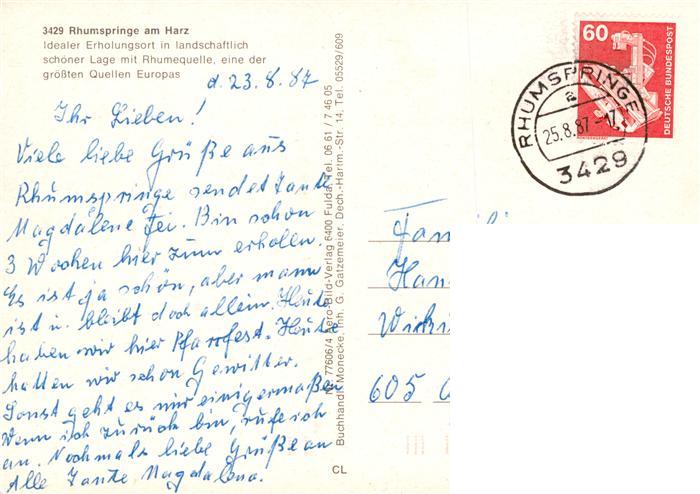 3429 Rhumspringe am Harz
Idealer Erholungsort in landschaftlich
schöner Lage mit Rhumequelle, eine der
größten Quellen Europas
d. 23.8.87
Ihr Lieben!
Viele liebe Grüße aus
Rhumspringe sendet Tante
Magdalene Bin schon
3 Wochen hier zum erhollen.
Es ist ja schön, aber mann
ist u. bleibt doch allein. Heute
haben wir hier Pfarrfest. Heute
hatten wir schon Gewitter.
Sonst geht es mir einigermaßen
Wenn ich zurück bin, rufe ich
an. Nochmals liebe Grüße an
Alle Tante Magdalena.
Nr. 77606/4 Aero-Bild-Verlag 6400 Fulda, Tel. 06 61 / 7 46 05
Buchhandl. Monecke, Inh. G. Gatzemeier, Dech.-Hartm.-Str. 14, Tel. 05529/609
CL
60
DEUTSCHE BUNDESPOST
RHUMSPRINGE
a
25.8.87-17
3429
Fam
Han
605